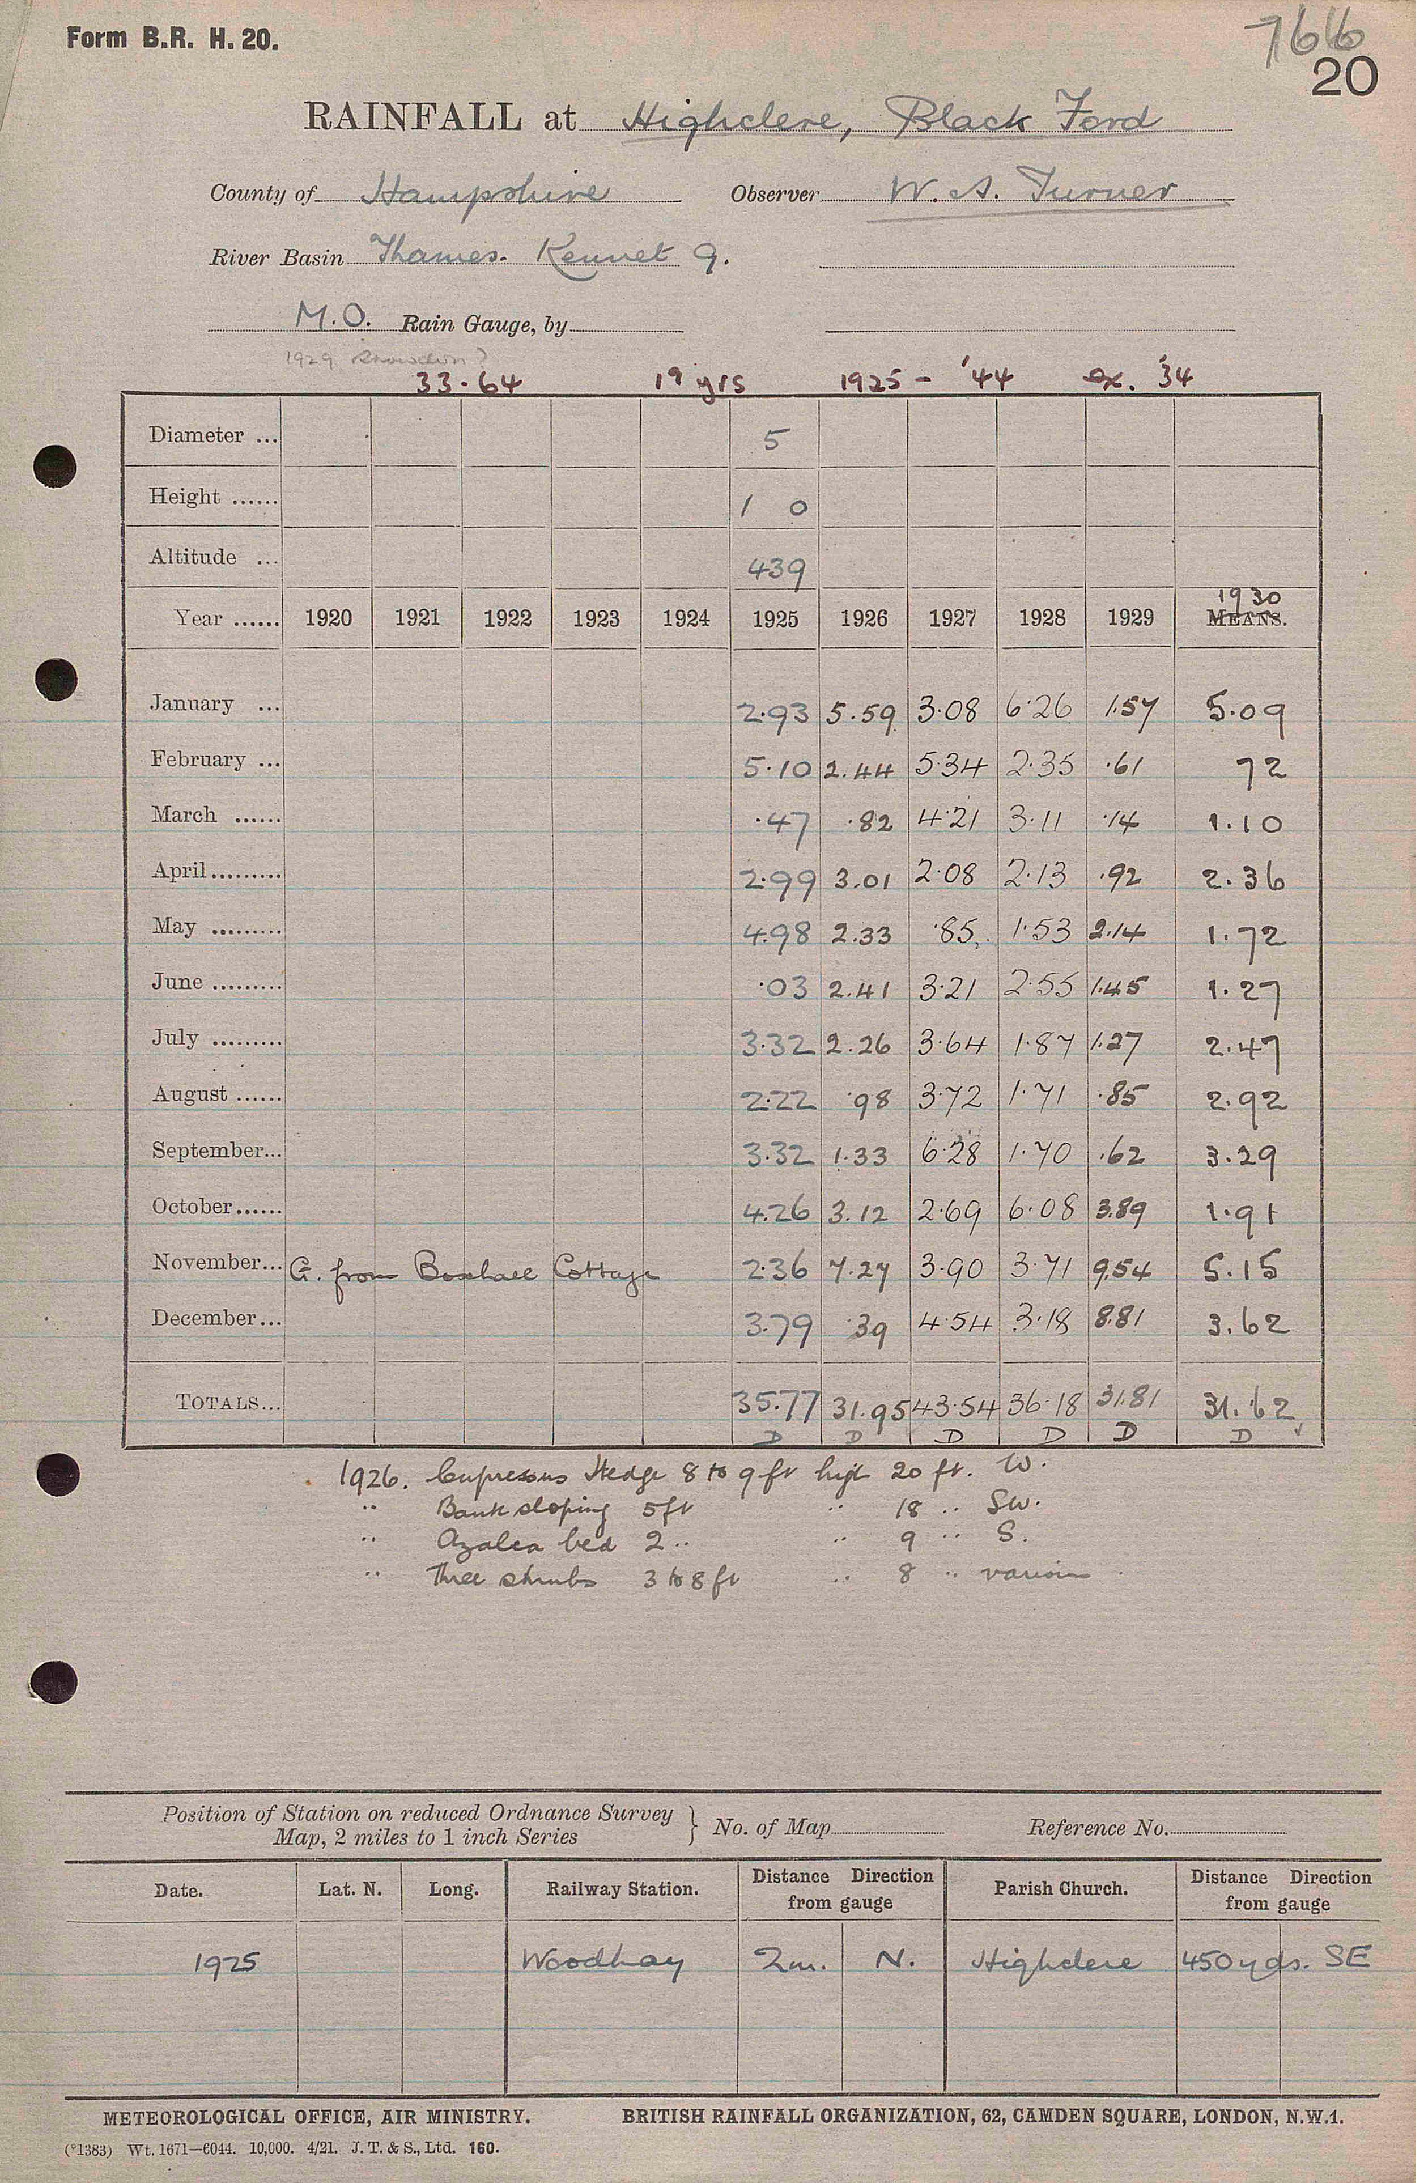 Form B.R. H. 20.
766
20
RAINFALL at Highclere, Black Ford
County of Hampshire Observer W. A. Turner
River Basin Thames. Kennet 9.
M.O. Rain Gauge, by
1929 Snowdon?
33.64 19 yrs 1925 - '44 ex. '34
Diameter ... 5
Height ...... 1 0
Altitude ... 439
1930
Year ...... 1920 1921 1922 1923 1924 1925 1926 1927 1928 1929 MEANS.
January ... 2.93 5.59 3.08 6.26 1.57 5.09
February ... 5.10 2.44 5.34 2.35 .61 72
March ...... .47 .82 4.21 3.11 .14 1.10
April ......... 2.99 3.01 2.08 2.13 .92 2.36
May ......... 4.98 2.33 .85 1.53 2.14 1.72
June ......... .03 2.41 3.21 2.55 1.45 1.27
July ......... 3.32 2.26 3.64 1.87 1.27 2.47
August ...... 2.22 .98 3.72 1.71 .85 2.92
September... 3.32 1.33 6.28 1.70 .62 3.29
October...... 4.26 3.12 2.69 6.08 3.89 1.91
November... G. from Cottage 2.36 7.27 3.90 3.71 9.54 5.15
December... 3.79 .39 4.54 3.18 8.81 3.62
TOTALS... 35.77 31.95 43.54 36.18 31.81 31.62
D D D D D D
1926. Cupressus Hedge 8 to 9 ft high 20 ft. W.
" Bank sloping 5 ft " 18 " SW.
" Azalea bed 2 " " 9 " S.
" Three shrubs 3 to 8 ft " 8 " various
Position of Station on reduced Ordnance Survey
Map, 2 miles to 1 inch Series } No. of Map Reference No.
Date. Lat. N. Long. Railway Station. Distance Direction from gauge Parish Church. Distance Direction from gauge
1925 Woodhay 2m. N. Highclere 450 yds. SE
METEOROLOGICAL OFFICE, AIR MINISTRY. BRITISH RAINFALL ORGANIZATION, 62, CAMDEN SQUARE, LONDON, N.W.1.
(*1383) Wt. 1671—6044. 10,000. 4/21. J. T. & S., Ltd. 160.